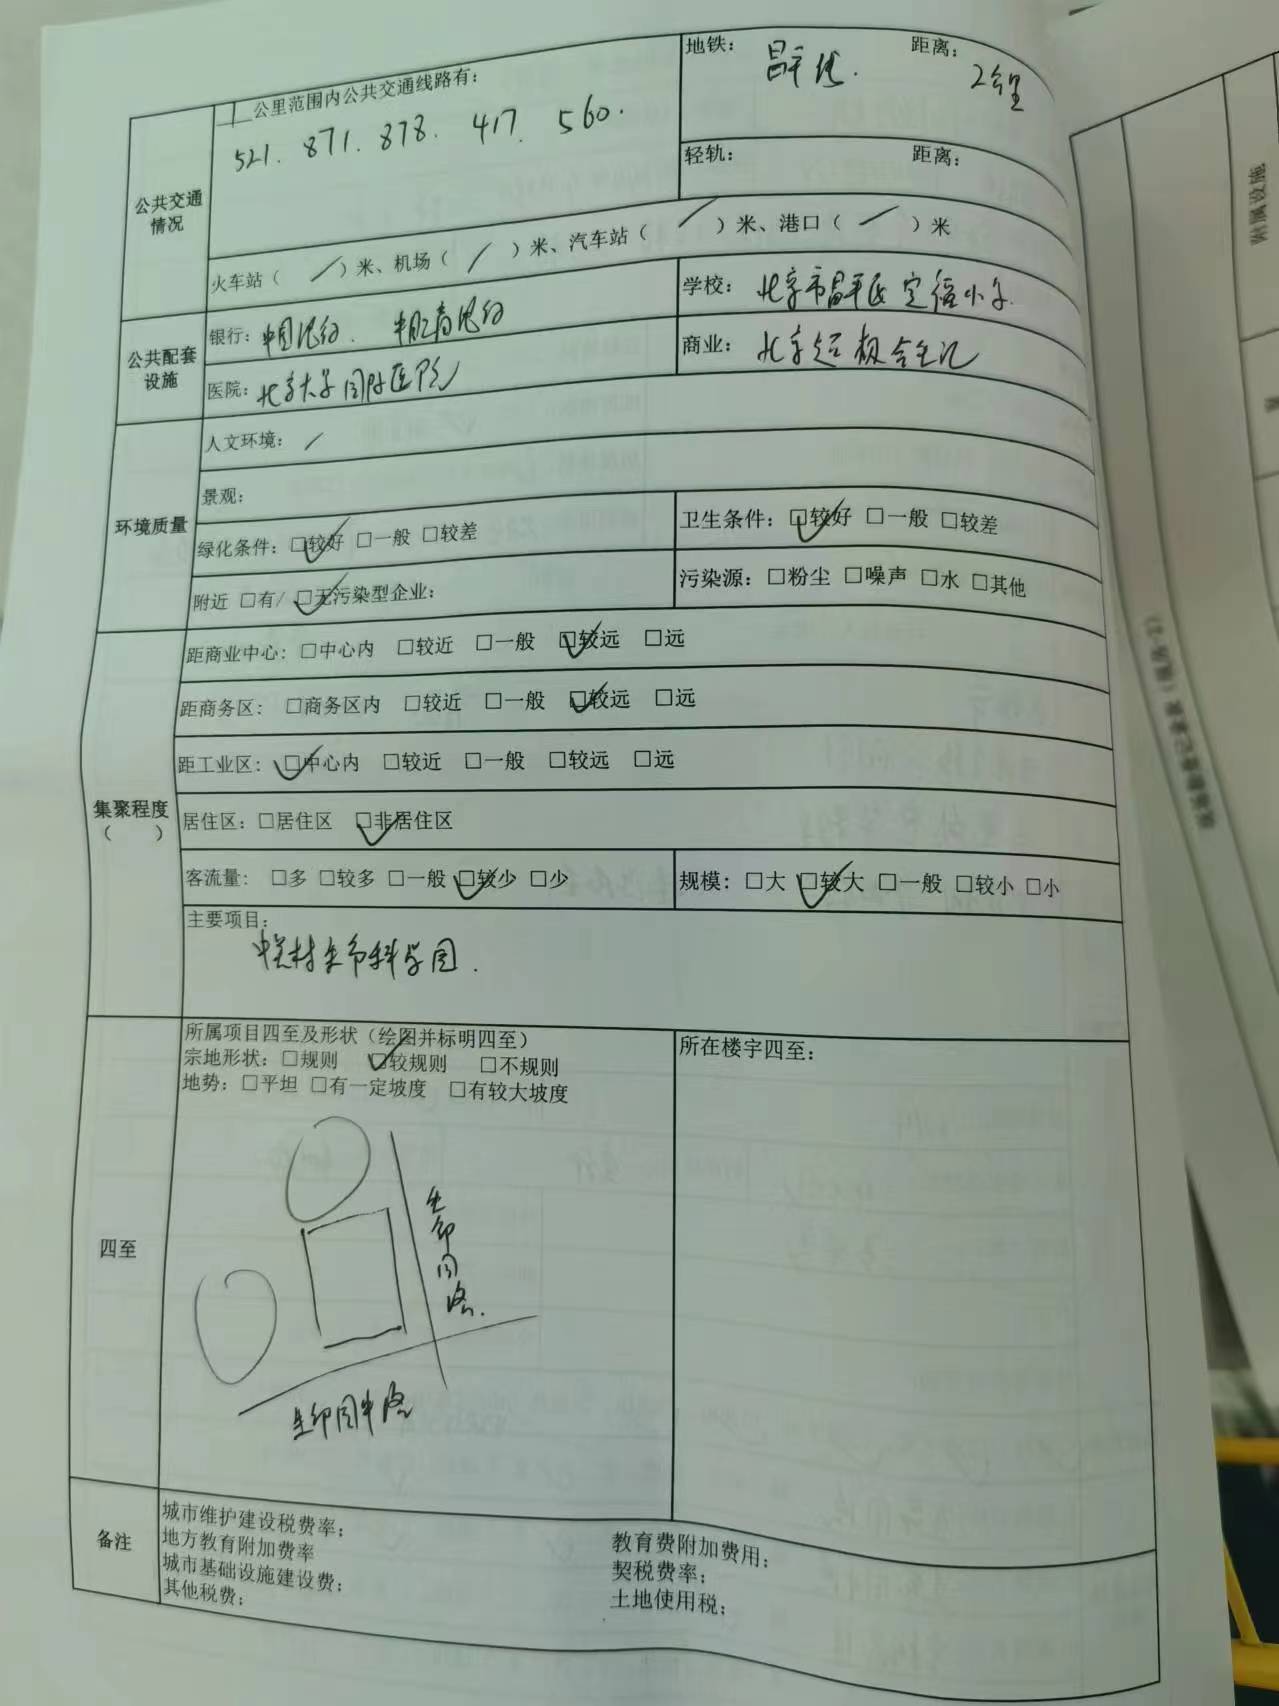 公里范围内公共交通线路有：
521. 871. 878. 417. 560.
地铁： 昌平线. 距离： 2公里
轻轨： 距离：
公共交通
情况
火车站（ / ）米、机场（ / ）米、汽车站（ / ）米、港口（ / ）米
公共配套
设施
银行：中国银行. 中信银行
学校：北京市昌平区定福小学.
医院：北京大学国际医院
商业：北京超极合生汇
环境质量
人文环境： /
景观：
绿化条件：☑较好 □一般 □较差
卫生条件：☑较好 □一般 □较差
附近 □有/ ☑无污染型企业：
污染源：□粉尘 □噪声 □水 □其他
集聚程度
（ ）
距商业中心：□中心内 □较近 □一般 ☑较远 □远
距商务区： □商务区内 □较近 □一般 ☑较远 □远
距工业区： ☑中心内 □较近 □一般 □较远 □远
居住区：□居住区 ☑非居住区
客流量： □多 □较多 □一般 ☑较少 □少
规模：□大 ☑较大 □一般 □较小 □小
主要项目：
中关村生命科学园.
四至
所属项目四至及形状（绘图并标明四至）
宗地形状：□规则 ☑较规则 □不规则
地势：□平坦 □有一定坡度 □有较大坡度
生命园路.
生命园中路
所在楼宇四至：
备注
城市维护建设税费率；
地方教育附加费率
城市基础设施建设费；
其他税费；
教育费附加费用；
契税费率；
土地使用税；
附属设施